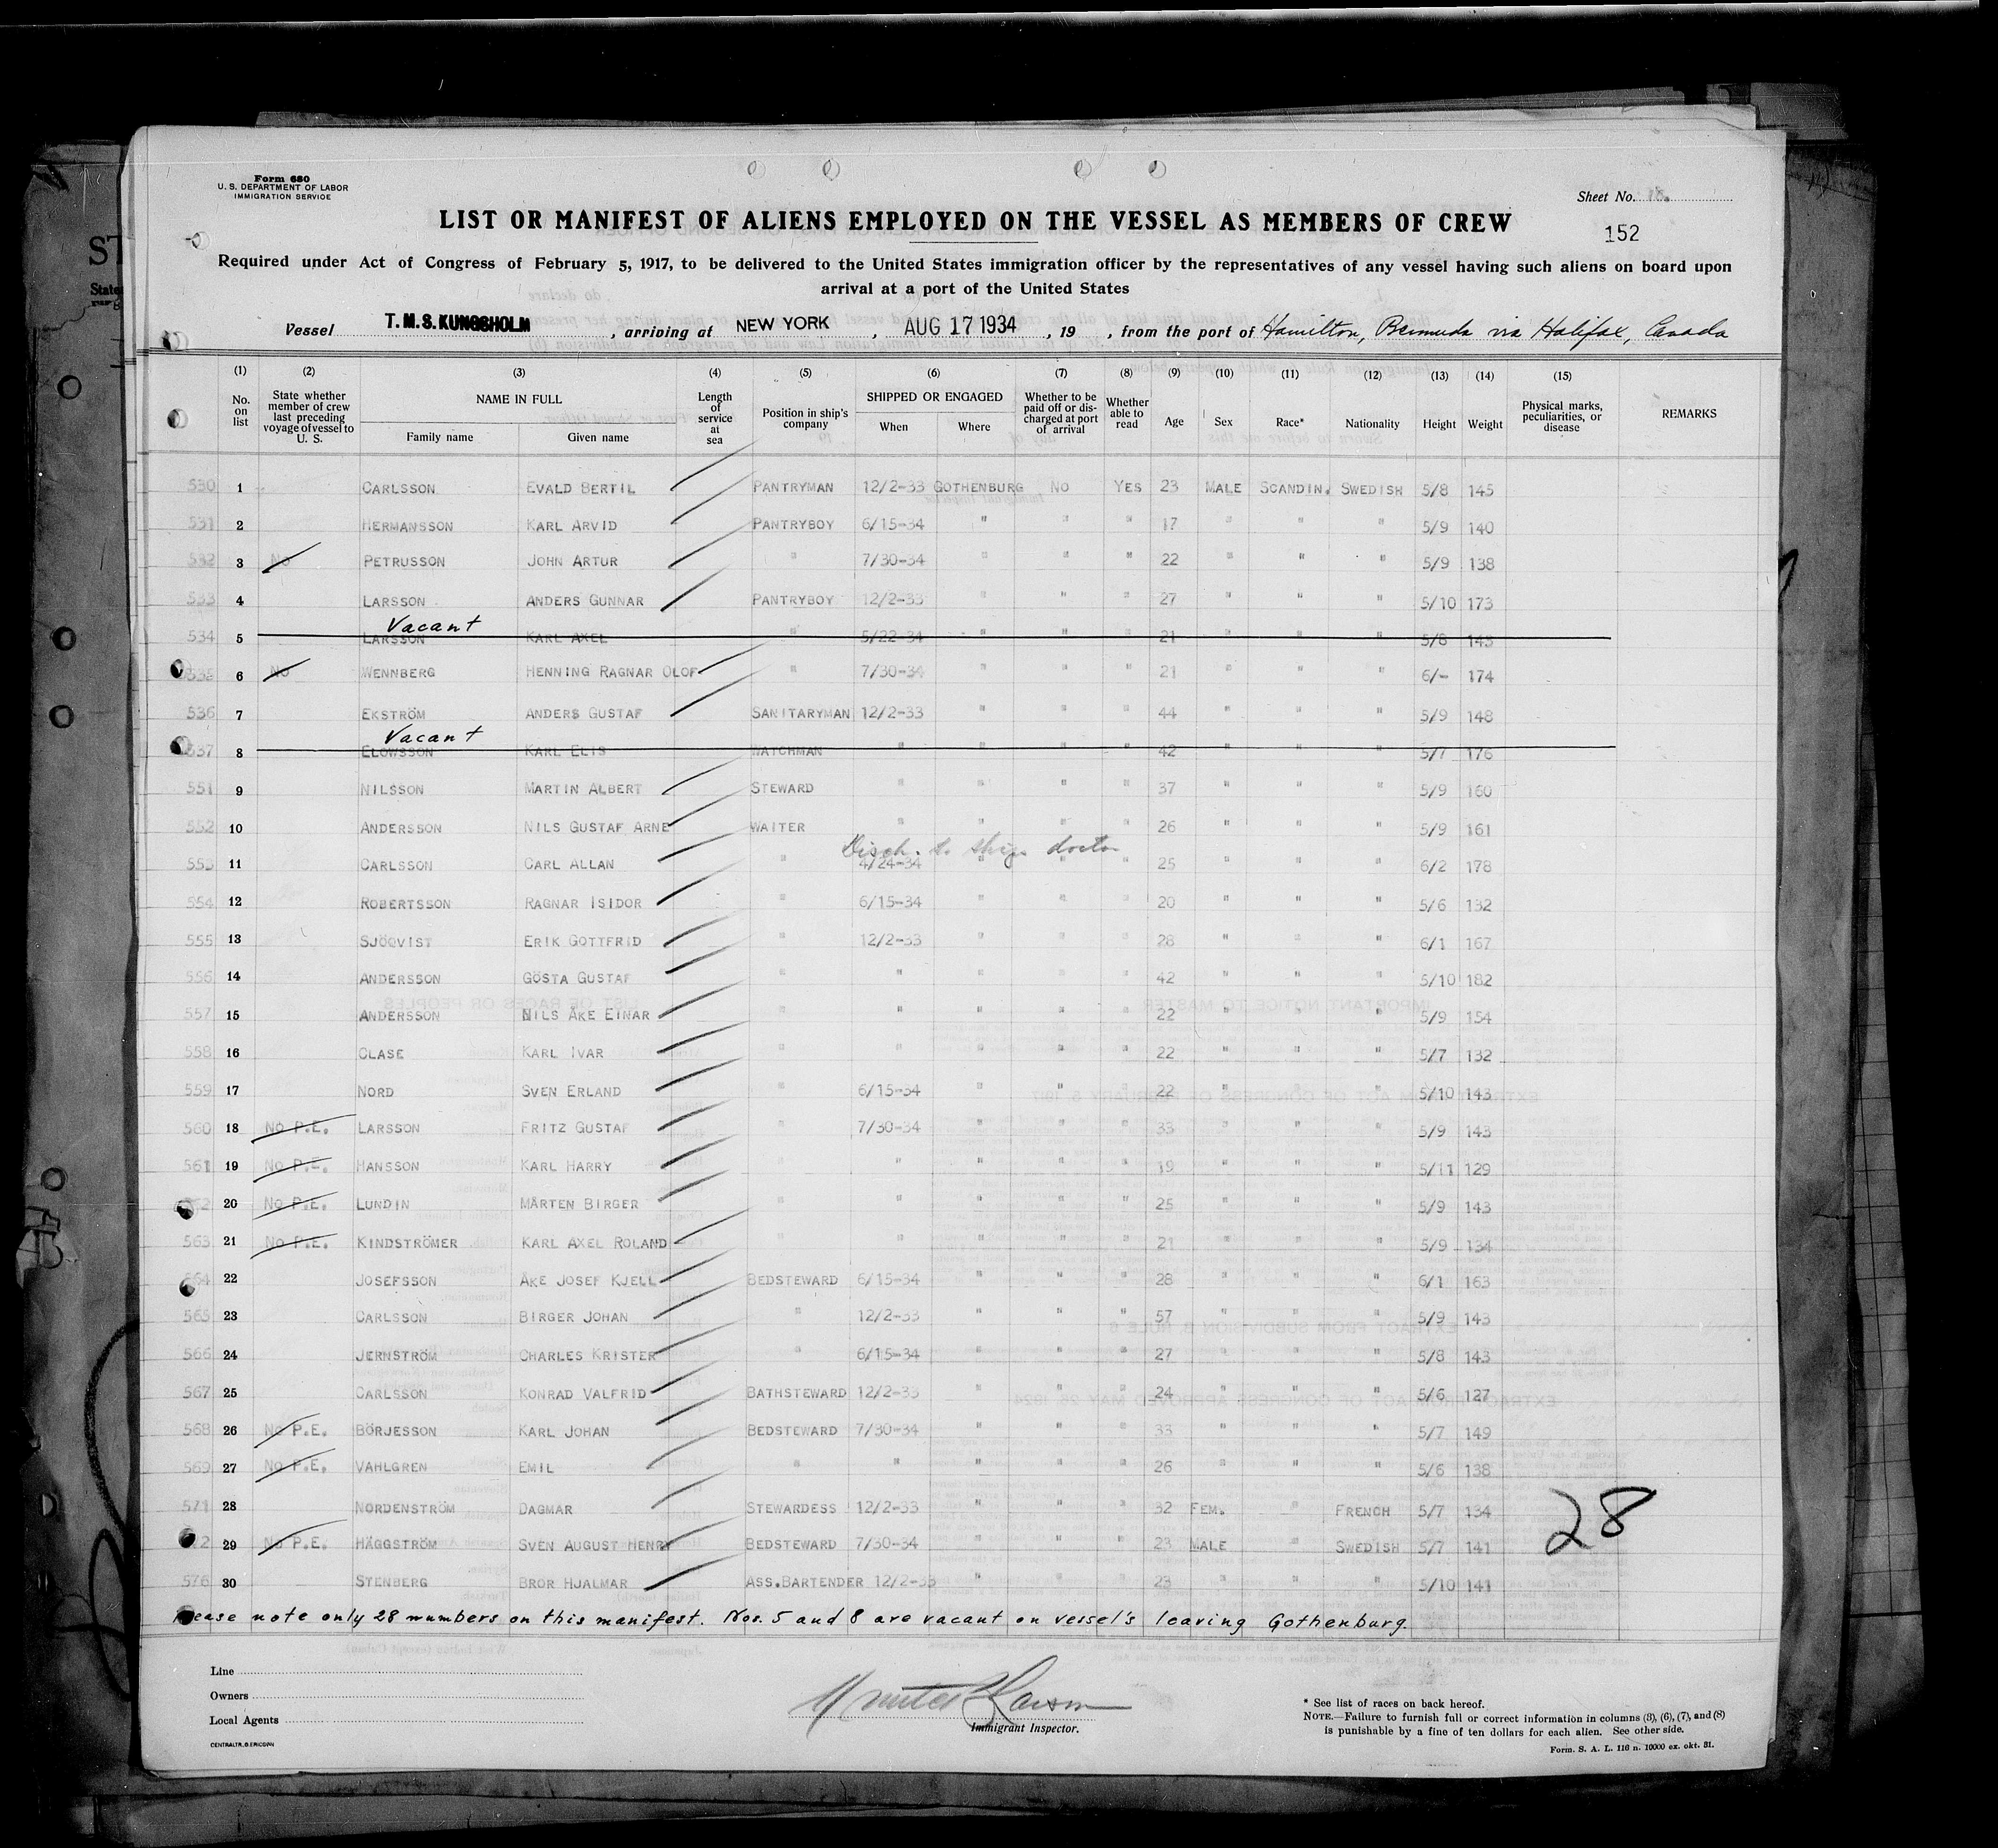 Form 680
U. S. DEPARTMENT OF LABOR
IMMIGRATION SERVICE
Sheet No. 18.
LIST OR MANIFEST OF ALIENS EMPLOYED ON THE VESSEL AS MEMBERS OF CREW
152
Required under Act of Congress of February 5, 1917, to be delivered to the United States immigration officer by the representatives of any vessel having such aliens on board upon
arrival at a port of the United States
Vessel T.M.S. KUNGSHOLM, arriving at NEW YORK, AUG 17 1934, 19 , from the port of Hamilton, Bermuda via Halifax, Canada
(1) (2) (3) (4) (5) (6) (7) (8) (9) (10) (11) (12) (13) (14) (15)
No. on list State whether member of crew last preceding voyage of vessel to U. S. NAME IN FULL Family name Given name Length of service at sea Position in ship's company SHIPPED OR ENGAGED When Where Whether to be paid off or discharged at port of arrival Whether able to read Age Sex Race* Nationality Height Weight Physical marks, peculiarities, or disease REMARKS
530 1 CARLSSON EVALD BERTIL PANTRYMAN 12/2-33 GOTHENBURG NO YES 23 MALE SCANDIN. SWEDISH 5/8 145
531 2 HERMANSSON KARL ARVID PANTRYBOY 6/15-34 " " " 17 " " " 5/9 140
532 3 No PETRUSSON JOHN ARTUR " 7/30-34 " " " 22 " " " 5/9 138
533 4 LARSSON ANDERS GUNNAR PANTRYBOY 12/2-33 " " " 27 " " " 5/10 173
Vacant
534 5 LARSSON KARL AXEL " 5/22-34 " " " 21 " " " 5/8 145
535 6 No WENNBERG HENNING RAGNAR OLOF " 7/30-34 " " " 21 " " " 6/- 174
536 7 EKSTRÖM ANDERS GUSTAF SANITARYMAN 12/2-33 " " " 44 " " " 5/9 148
Vacant
537 8 ELOWSSON KARL ELIS WATCHMAN " " " " 42 " " " 5/7 176
551 9 NILSSON MARTIN ALBERT STEWARD " " " " 37 " " " 5/9 160
552 10 ANDERSSON NILS GUSTAF ARNE WAITER " " " " 26 " " " 5/9 161
Disch. to ships doctor
553 11 CARLSSON CARL ALLAN " 4/24-34 " " " 25 " " " 6/2 178
554 12 ROBERTSSON RAGNAR ISIDOR " 6/15-34 " " " 20 " " " 5/6 132
555 13 SJÖQVIST ERIK GOTTFRID " 12/2-33 " " " 28 " " " 6/1 167
556 14 ANDERSSON GÖSTA GUSTAF " " " " " 42 " " " 5/10 182
557 15 ANDERSSON NILS ÅKE EINAR " " " " " 22 " " " 5/9 154
558 16 CLASE KARL IVAR " " " " " 22 " " " 5/7 132
559 17 NORD SVEN ERLAND " 6/15-34 " " " 22 " " " 5/10 143
560 18 No P.E. LARSSON FRITZ GUSTAF " 7/30-34 " " " 33 " " " 5/9 143
561 19 No P.E. HANSSON KARL HARRY " " " " " 19 " " " 5/11 129
562 20 No P.E. LUNDIN MÅRTEN BIRGER " " " " " 25 " " " 5/9 143
563 21 No P.E. KINDSTRÖMER KARL AXEL ROLAND " " " " " 21 " " " 5/9 134
564 22 JOSEFSSON ÅKE JOSEF KJELL BEDSTEWARD 6/15-34 " " " 28 " " " 6/1 163
565 23 CARLSSON BIRGER JOHAN " 12/2-33 " " " 57 " " " 5/9 143
566 24 JERNSTRÖM CHARLES KRISTER " 6/15-34 " " " 27 " " " 5/8 143
567 25 CARLSSON KONRAD VALFRID BATHSTEWARD 12/2-33 " " " 24 " " " 5/6 127
568 26 No P.E. BÖRJESSON KARL JOHAN BEDSTEWARD 7/30-34 " " " 33 " " " 5/7 149
569 27 No P.E. VAHLGREN EMIL " " " " " 26 " " " 5/6 138
571 28 NORDENSTRÖM DAGMAR STEWARDESS 12/2-33 " " " 32 FEM. " FRENCH 5/7 134
28
29 No P.E. HÄGGSTRÖM SVEN AUGUST HENRY BEDSTEWARD 7/30-34 " " " 23 MALE " SWEDISH 5/7 141
576 30 STENBERG BROR HJALMAR ASS.BARTENDER 12/2-33 " " " 23 " " " 5/10 141
Please note only 28 numbers on this manifest. Nos. 5 and 8 are vacant on vessel's leaving Gothenburg.
Line
Owners
Local Agents
CENTRALTR. G. ERICSON
Immigrant Inspector.
* See list of races on back hereof.
NOTE.—Failure to furnish full or correct information in columns (3), (6), (7), and (8)
is punishable by a fine of ten dollars for each alien. See other side.
Form. S. A. L. 116 n. 10000 ex. okt. 31.